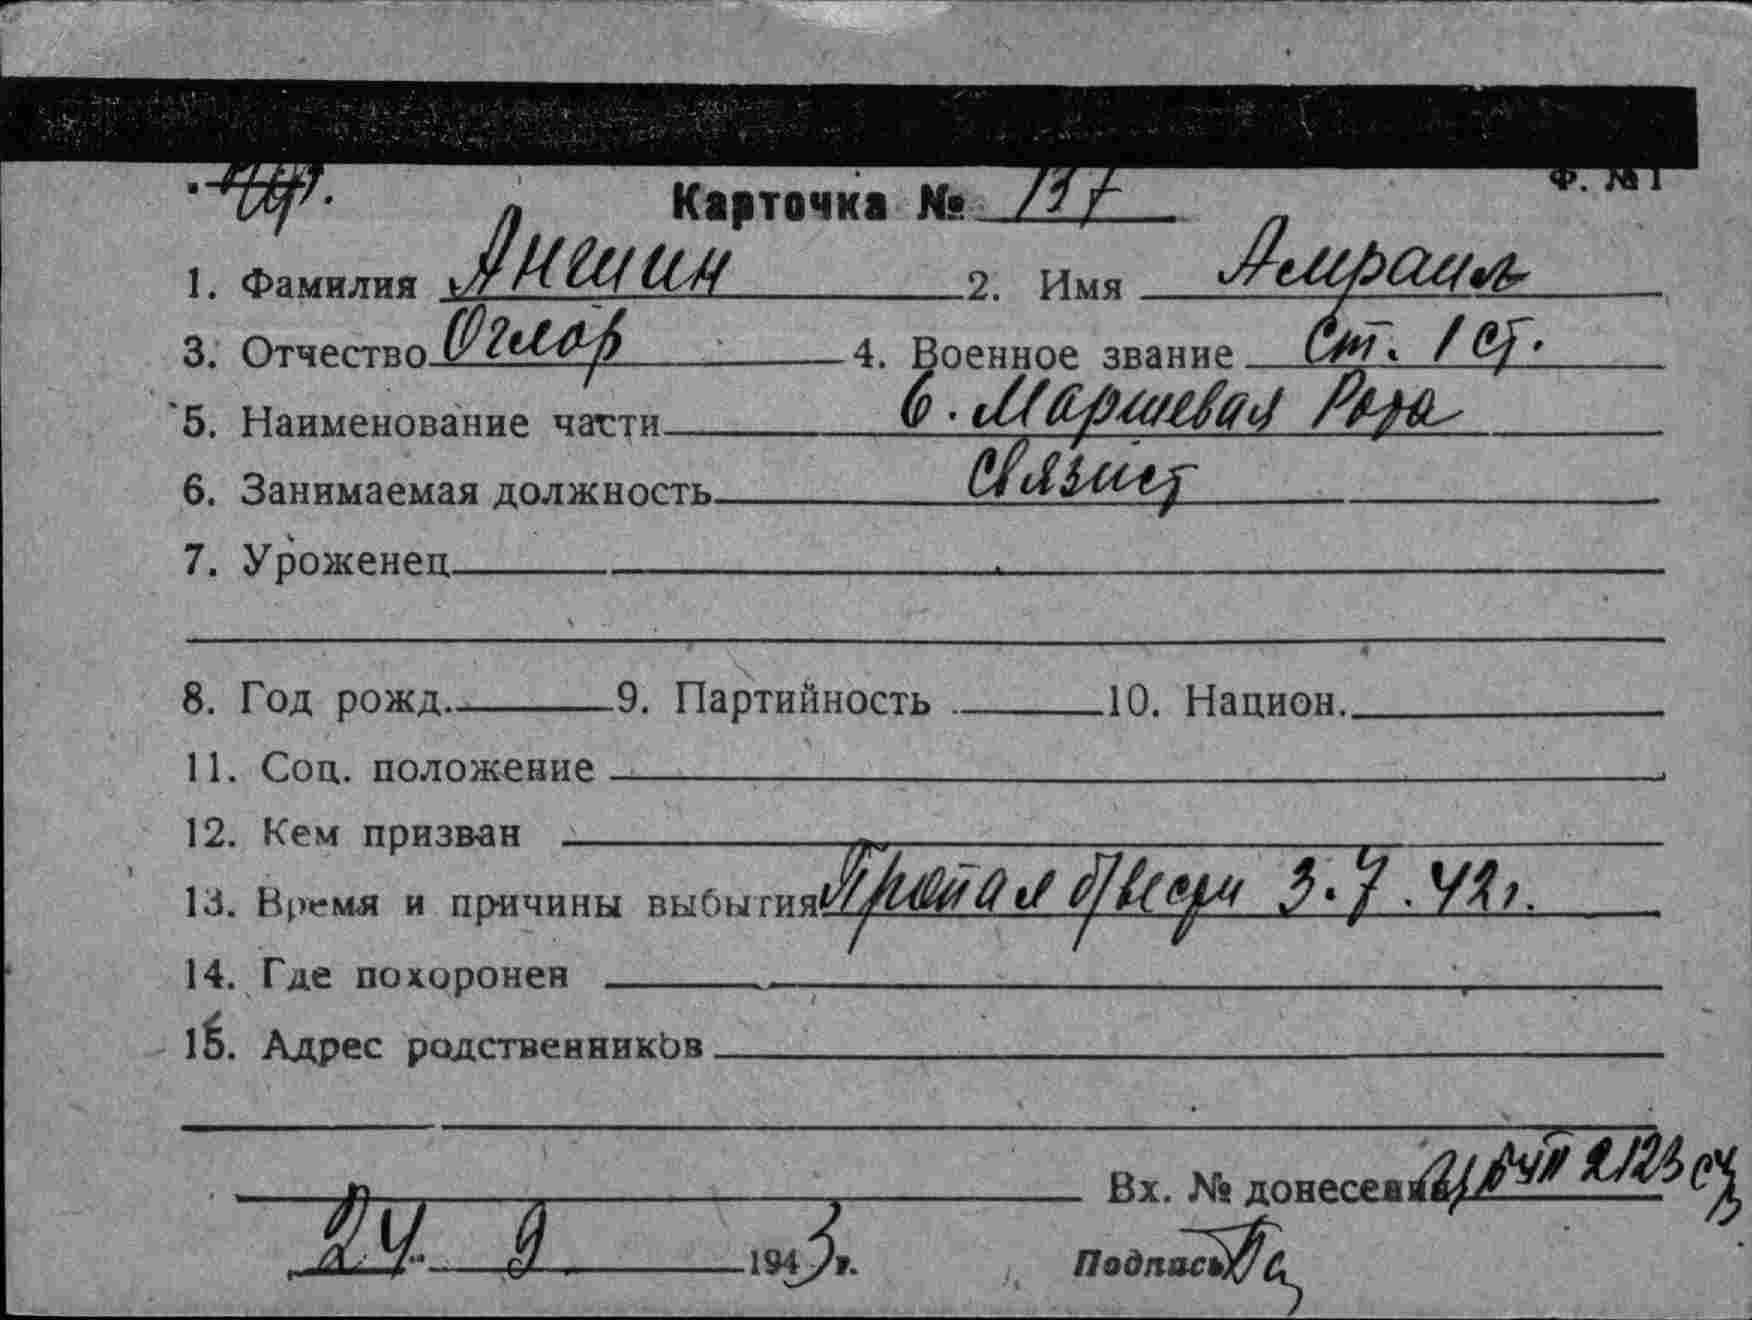 Ф. №1
Карточка № 137
1. Фамилия Аншин 2. Имя Амраиль
3. Отчество Оглар 4. Военное звание Ст. 1 ст.
5. Наименование части 6. Маршевая Рота
6. Занимаемая должность Связист
7. Уроженец
8. Год рожд. 9. Партийность 10. Национ.
11. Соц. положение
12. Кем призван
13. Время и причины выбытия Пропал б/вести 3.7.42г.
14. Где похоронен
15. Адрес родственников
Вх. № донесения
24. 9 1943 г.
Подпись